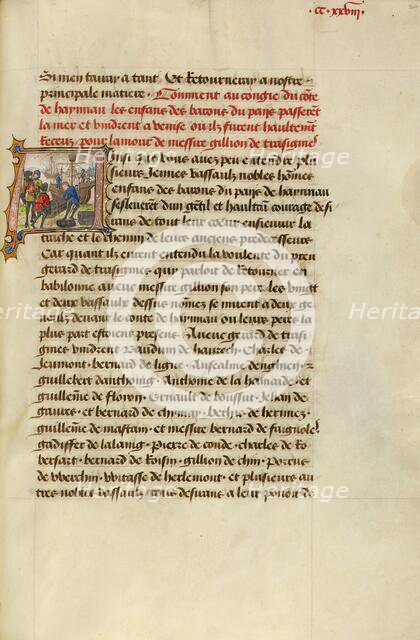 .cc.xxviii.
Si men tairay a tant. Et Retourneray a nostre
principale matiere. Comment au congie du conte
de haynnau les enfans des barons du pays passerent
la mer et vindrent a venise ou ilz furent haultement
Receus pour lamour de messire gillion de trasignies
Insi que vous avez peu entendre plu
sieurs Jennes vassaulz nobles hommes
enfans des barons du pays de haynnau
sesleverent dun gentil et haultain courage desi
rans de tout leur coeur ensievir la
trache et le chemin de leurs anciens predecesseurs
Car quant ilz eurent entendu la voulente du preu
gerard de trasignies qui parloit de Retourner en
babilonne avecq messire gillion son pere. Les vingt
et deux vassaulx dessus nommez se mirent a deux ge
noulz devant le conte de haynnau ou leurs peres la
plus part estoient presens. Avecq gerard de trasi
gnies vindrent Bauduin de havrech. Charles de
Jeumont. bernard de ligne. Anseaulme denghien.
guillebert danthoing. Anthoine de la hamaide. et
guillaume de floyon. Ernault de boussut. Jehan de
gavres. et bernard de chimay. bethis de hermez.
guillaume de mastain. et messire bernard de faignoles.
gadiffer de lalaing. Pierre de conde. charles de Ro
bersart. bernard de Roisin. gillion de chin. Porrus
de wuerchin. witasse de berlemont. et plusieurs au
tres nobles vassaulz tous desirans a leur povoir de
Heritage
Images